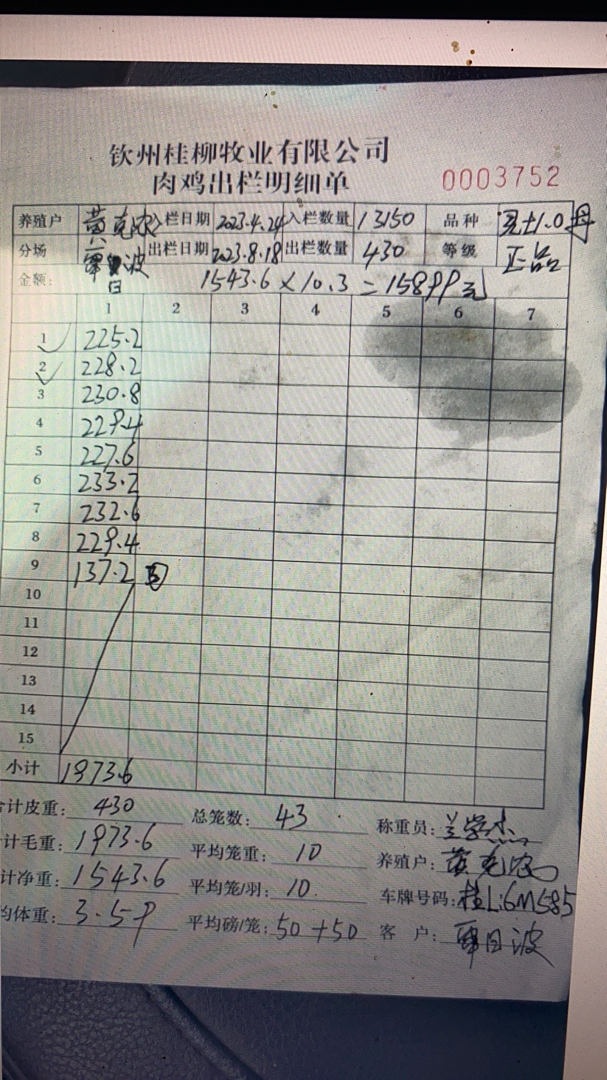 钦州桂柳牧业有限公司
肉鸡出栏明细单 0003752
养殖户 黄克浓 入栏日期 2023.4.24 入栏数量 13150 品种 土1.0母
分场 八 覃日波 出栏日期 2023.8.18 出栏数量 430 等级 正品
金额: 1543.6 × 10.3 = 15899元
1 2 3 4 5 6 7
1 225.2
2 228.2
3 230.8
4 229.4
5 227.6
6 233.2
7 232.6
8 229.4
9 137.2 ⑤
10
11
12
13
14
15
小计 1973.6
计皮重: 430 总笼数: 43 称重员:
计毛重: 1973.6 平均笼重: 10 养殖户: 黄克浓
计净重: 1543.6 平均笼/羽: 10. 车牌号码: 桂L:6M585
均体重: 3.59 平均磅/笼: 50+50 客 户: 覃日波